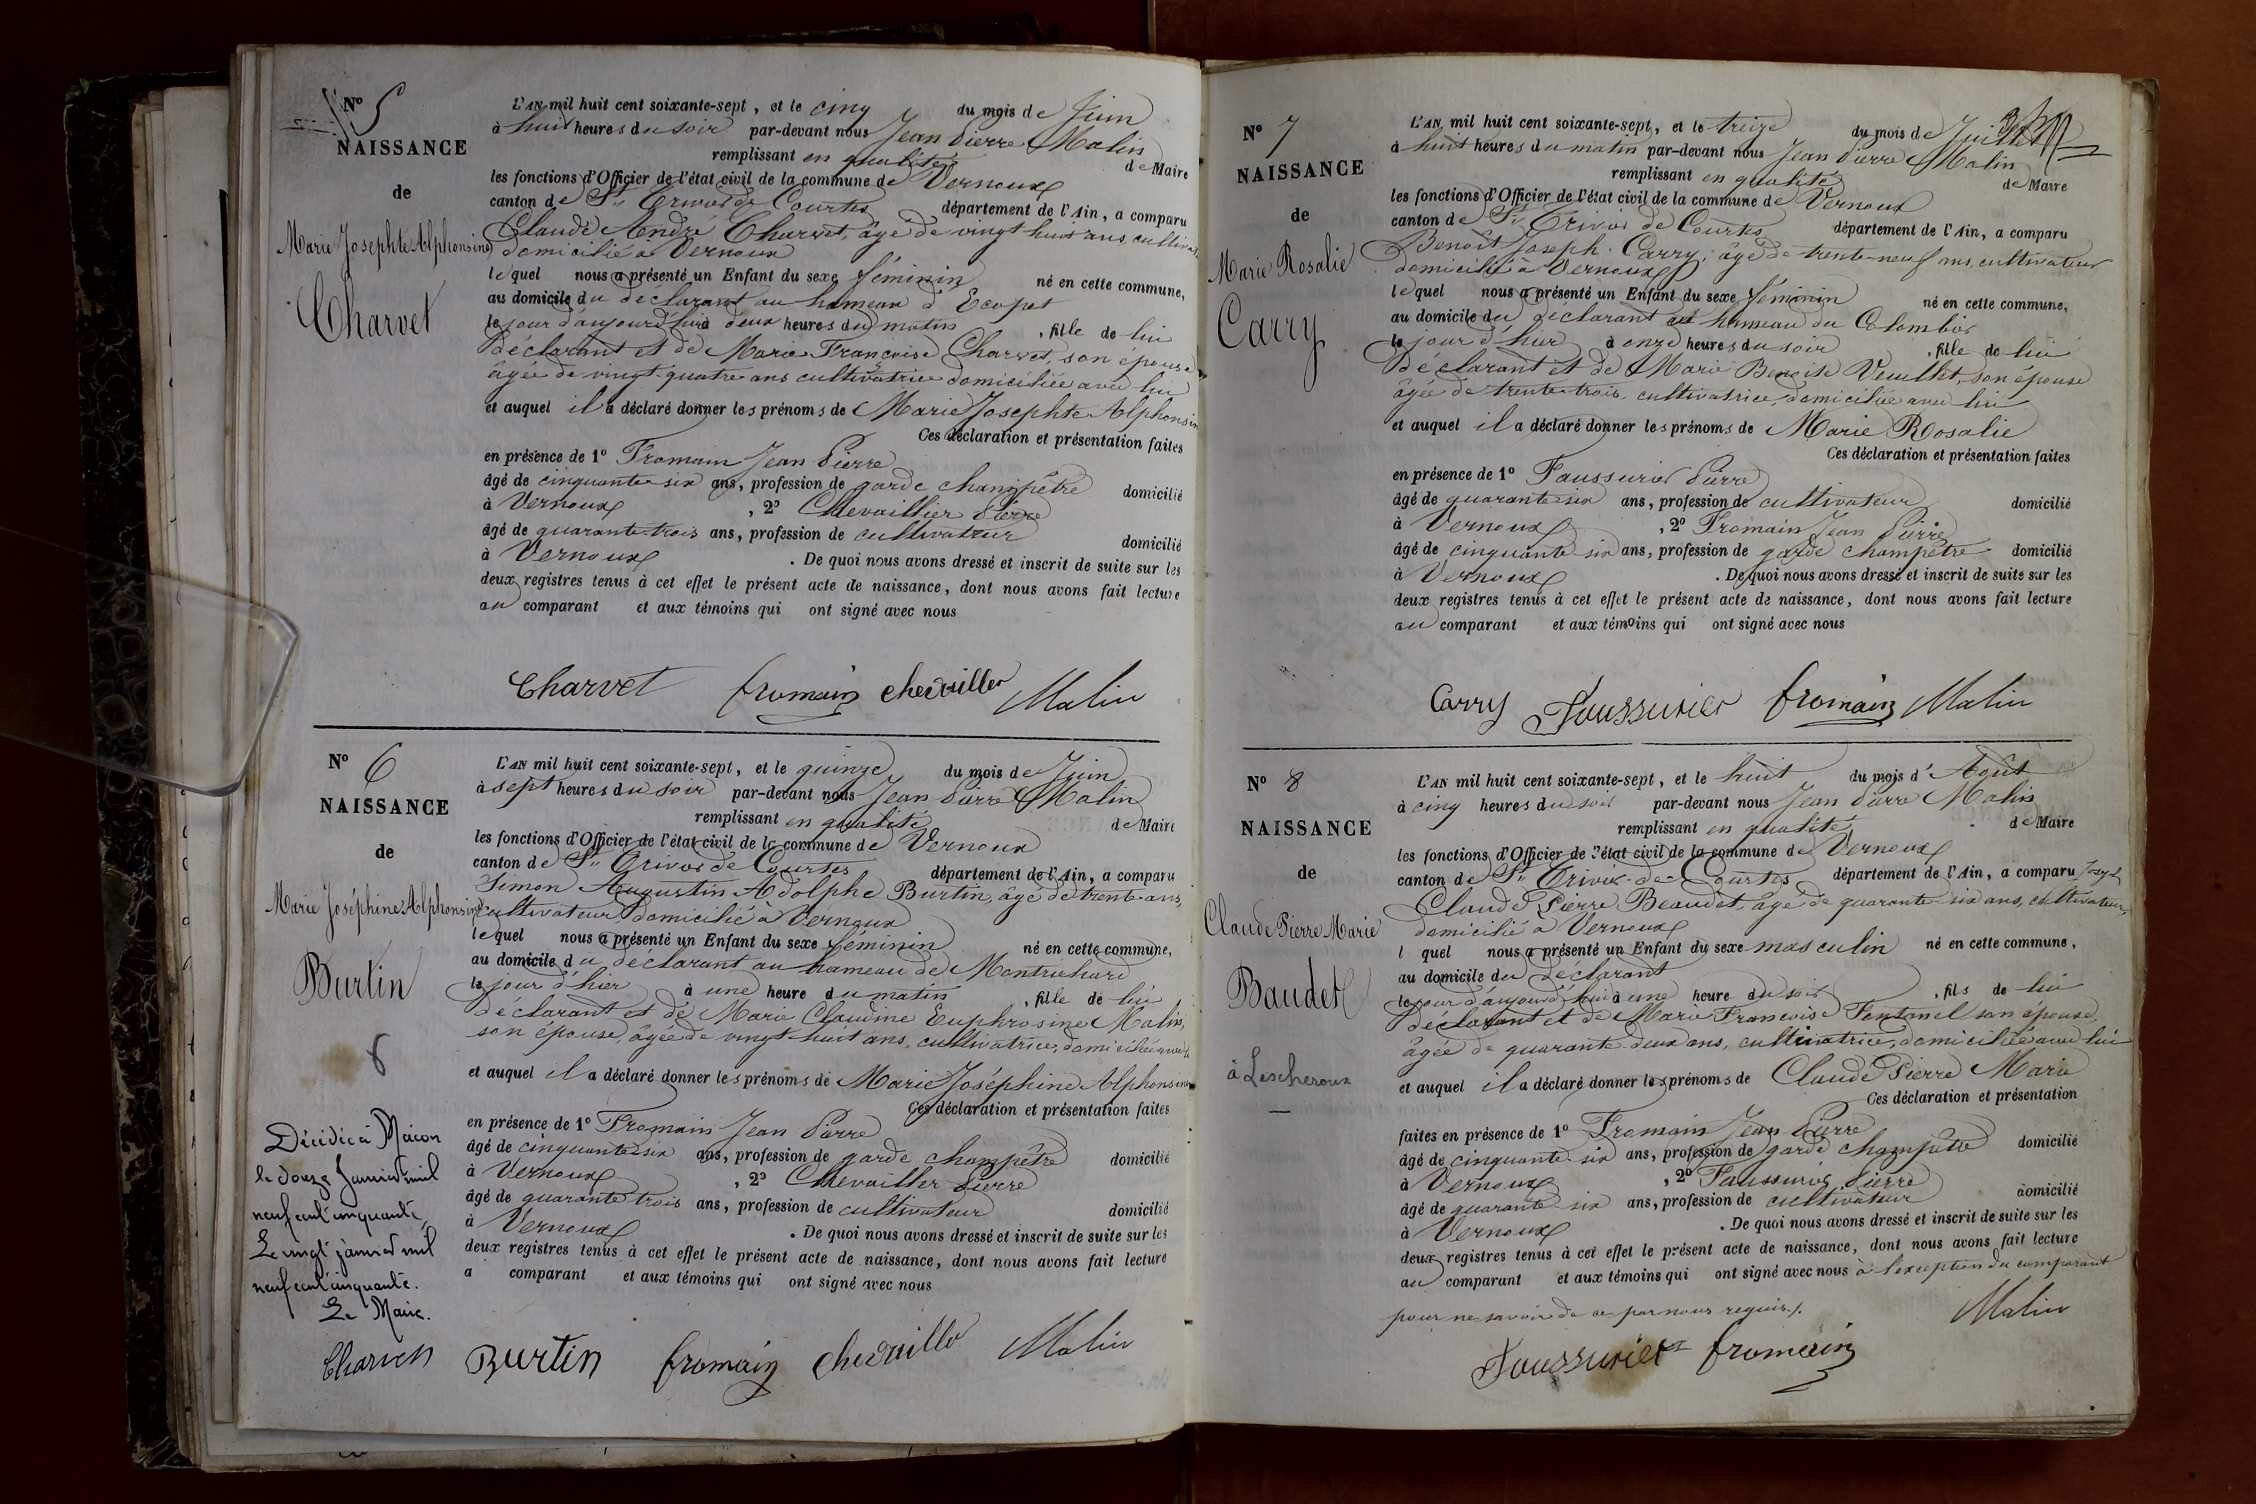 N° 5
NAISSANCE
de
Marie Josephte Alphonsine
Charvet
L'AN mil huit cent soixante-sept, et le cinq du mois de Juin
à huit heures du soir par-devant nous Jean Pierre Malin
remplissant en qualité de Maire
les fonctions d'Officier de l'état civil de la commune de Vernoux
canton de St Trivier de Courtes département de l'Ain, a comparu
Claude André Charvet, âgé de vingt huit ans, cultivateur
domicilié à Vernoux
lequel nous a présenté un Enfant du sexe féminin né en cette commune,
au domicile du déclarant au hameau d'Ecopet
le jour d'aujourd'hui à deux heures du matin, fille de lui
déclarant et de Marie Françoise Charvet, son épouse
âgée de vingt quatre ans cultivatrice domiciliée avec lui
et auquel il a déclaré donner les prénoms de Marie Josephte Alphonsine
Ces déclaration et présentation faites
en présence de 1° Fromain Jean Pierre
âgé de cinquante-six ans, profession de garde champêtre domicilié
à Vernoux, 2° Chevaillier Pierre
âgé de quarante-trois ans, profession de cultivateur domicilié
à Vernoux. De quoi nous avons dressé et inscrit de suite sur les
deux registres tenus à cet effet le présent acte de naissance, dont nous avons fait lecture
au comparant et aux témoins qui ont signé avec nous
Charvet fromain chevailler Malin
N° 6
NAISSANCE
de
Marie Joséphine Alphonsine
Burtin
6
Décédée à Mâcon
le douze Janvier mil
neuf cent cinquante,
Le vingt janvier mil
neuf cent cinquante.
Le Maire.
L'AN mil huit cent soixante-sept, et le quinze du mois de Juin
à sept heures du soir par-devant nous Jean Pierre Malin
remplissant en qualité de Maire
les fonctions d'Officier de l'état civil de la commune de Vernoux
canton de St Trivier de Courtes département de l'Ain, a comparu
Simon Augustin Adolphe Burtin, âgé de trente ans,
cultivateur domicilié à Vernoux
lequel nous a présenté un Enfant du sexe féminin né en cette commune,
au domicile du déclarant au hameau de Montrichard
le jour d'hier à une heure du matin, fille de lui
déclarant et de Marie Claudine Euphrosine Malin,
son épouse, âgée de vingt huit ans, cultivatrice, domiciliée avec lui
et auquel il a déclaré donner les prénoms de Marie Joséphine Alphonsine
Ces déclaration et présentation faites
en présence de 1° Fromain Jean Pierre
âgé de cinquante-six ans, profession de garde champêtre domicilié
à Vernoux, 2° Chevaillier Pierre
âgé de quarante trois ans, profession de cultivateur domicilié
à Vernoux. De quoi nous avons dressé et inscrit de suite sur les
deux registres tenus à cet effet le présent acte de naissance, dont nous avons fait lecture
a comparant et aux témoins qui ont signé avec nous
Burtin fromain chevaillé Malin
N° 7
NAISSANCE
de
Marie Rosalie
Carry
L'AN mil huit cent soixante-sept, et le treize du mois de Juillet
à huit heures du matin par-devant nous Jean Pierre Malin
remplissant en qualité de Maire
les fonctions d'Officier de l'état civil de la commune de Vernoux
canton de St Trivier de Courtes département de l'Ain, a comparu
Benoît Joseph Carry, âgé de trente-neuf ans, cultivateur
domicilié à Vernoux
lequel nous a présenté un Enfant du sexe féminin né en cette commune,
au domicile du déclarant au hameau du Colombier
le jour d'hier à onze heures du soir, fille de lui
déclarant et de Marie Benoite Veuillet, son épouse
âgée de trente-trois, cultivatrice, domiciliée avec lui
et auquel il a déclaré donner les prénoms de Marie Rosalie
Ces déclaration et présentation faites
en présence de 1° Faussurier Pierre
âgé de quarante-six ans, profession de cultivateur domicilié
à Vernoux, 2° Fromain Jean Pierre
âgé de cinquante-six ans, profession de garde champêtre domicilié
à Vernoux. De quoi nous avons dressé et inscrit de suite sur les
deux registres tenus à cet effet le présent acte de naissance, dont nous avons fait lecture
au comparant et aux témoins qui ont signé avec nous
Carry Faussurier fromain Malin
N° 8
NAISSANCE
de
Claude Pierre Marie
Baudet
à Lescheroux
L'AN mil huit cent soixante-sept, et le huit du mois d'Août
à cinq heures du soir par-devant nous Jean Pierre Malin
remplissant en qualité de Maire
les fonctions d'Officier de l'état civil de la commune de Vernoux
canton de St Trivier de Courtes département de l'Ain, a comparu Joseph
Claude Pierre Beaudet, âgé de quarante-six ans, cultivateur,
domicilié à Vernoux
l quel nous a présenté un Enfant du sexe masculin né en cette commune,
au domicile du déclarant
le jour d'aujourd'hui à une heure du soir, fils de lui
déclarant et de Marie Françoise Fontanel son épouse,
âgée de quarante-deux ans, cultivatrice, domiciliée avec lui
et auquel il a déclaré donner les prénoms de Claude Pierre Marie
Ces déclaration et présentation
faites en présence de 1° Fromain Jean Pierre
âgé de cinquante-six ans, profession de garde champêtre domicilié
à Vernoux, 2° Faussurier Pierre
âgé de quarante-six ans, profession de cultivateur domicilié
à Vernoux. De quoi nous avons dressé et inscrit de suite sur les
deux registres tenus à cet effet le présent acte de naissance, dont nous avons fait lecture
au comparant et aux témoins qui ont signé avec nous à l'exception du comparant
pour ne savoir de ce par nous requis. Malin
Faussurier fromain